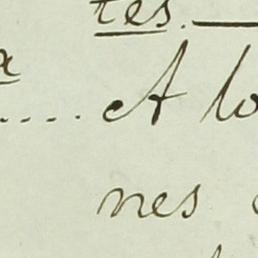 tes.
a
..... A lo
nes